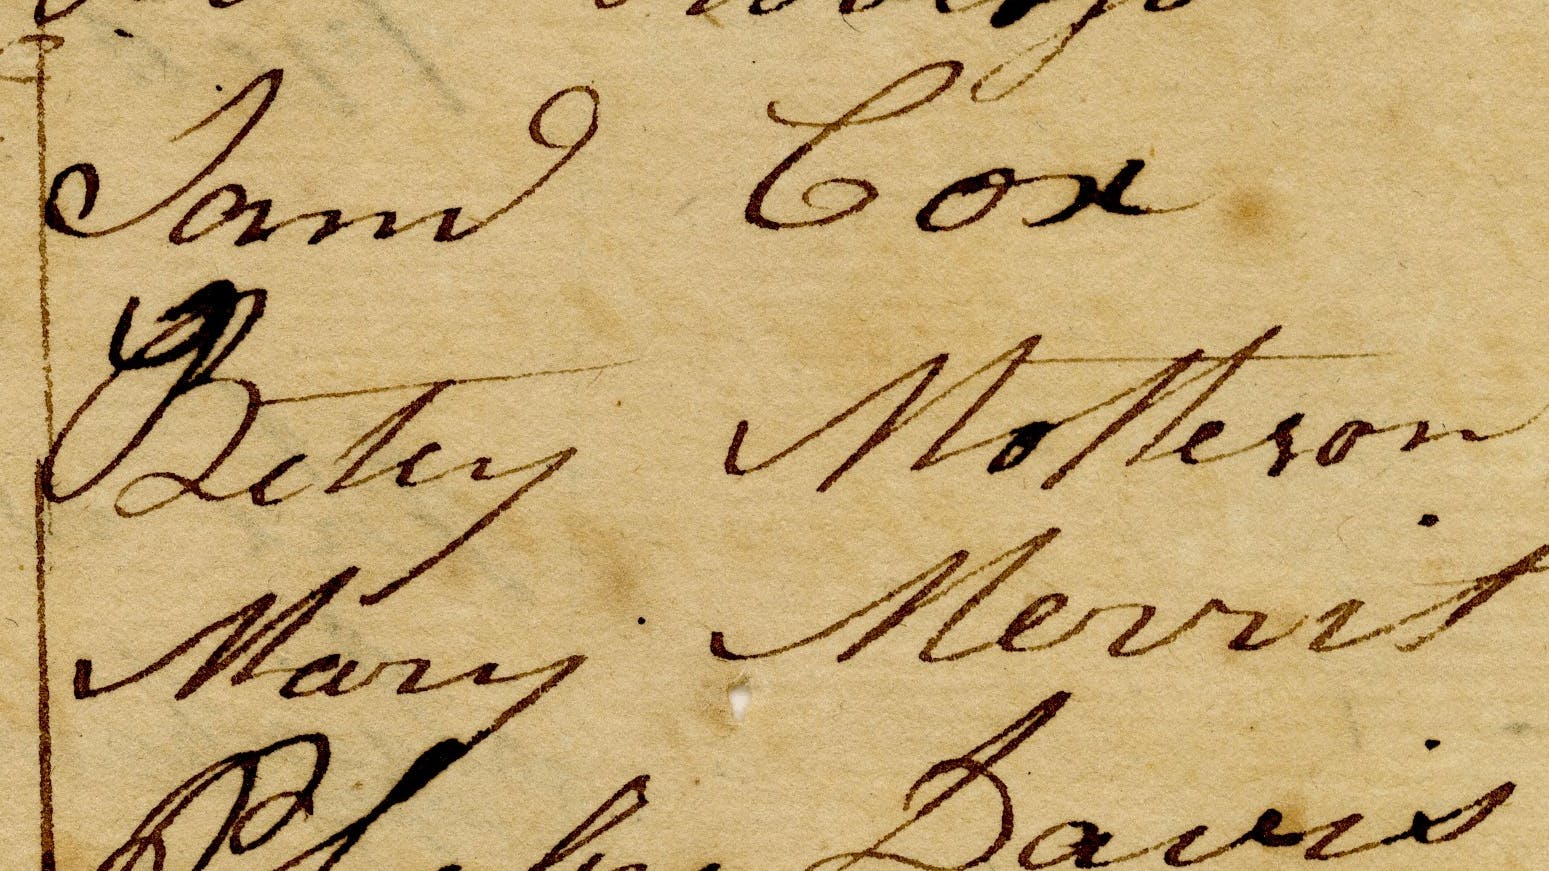 Samd Cox
Betey Motteson
Mary Merrit
Davis